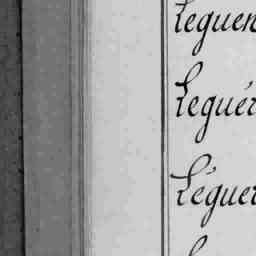 Leguen
Leguér
Léguer